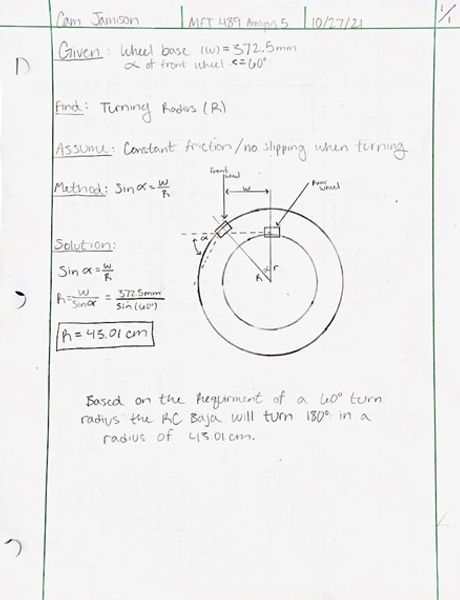 Cam Jamison MET 489 Analysis 5 10/27/21 1/1
Given: Wheel base (w) = 372.5mm
α of front wheel = 60°
Find: Turning Radius (R)
Assume: Constant friction/no slipping when turning
Method: Sinα = w/R
Front wheel
w
Rear wheel
α
α
R
r
Solution:
Sinα = w/R
R = w/Sinα = 372.5mm/sin(60°)
R = 43.01 cm
Based on the Requirment of a 60° turn
radius the RC Baja will turn 180° in a
radius of 43.01cm.